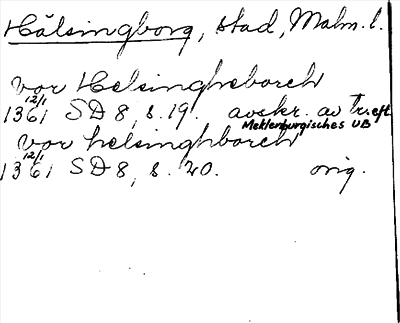 Hälsingborg, stad, Malm. l.
vor Helsingheborch
12/1
1361 SD 8, s. 19. avskr. av tr. eft.
Meklenburgisches UB
vor helsinghborch
12/1
1361 SD 8, s. 20. orig.